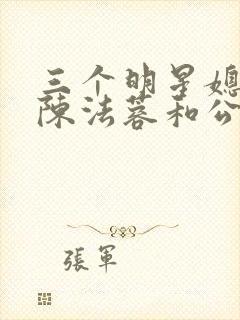 三个明星媳
陈法蓉和公
張軍